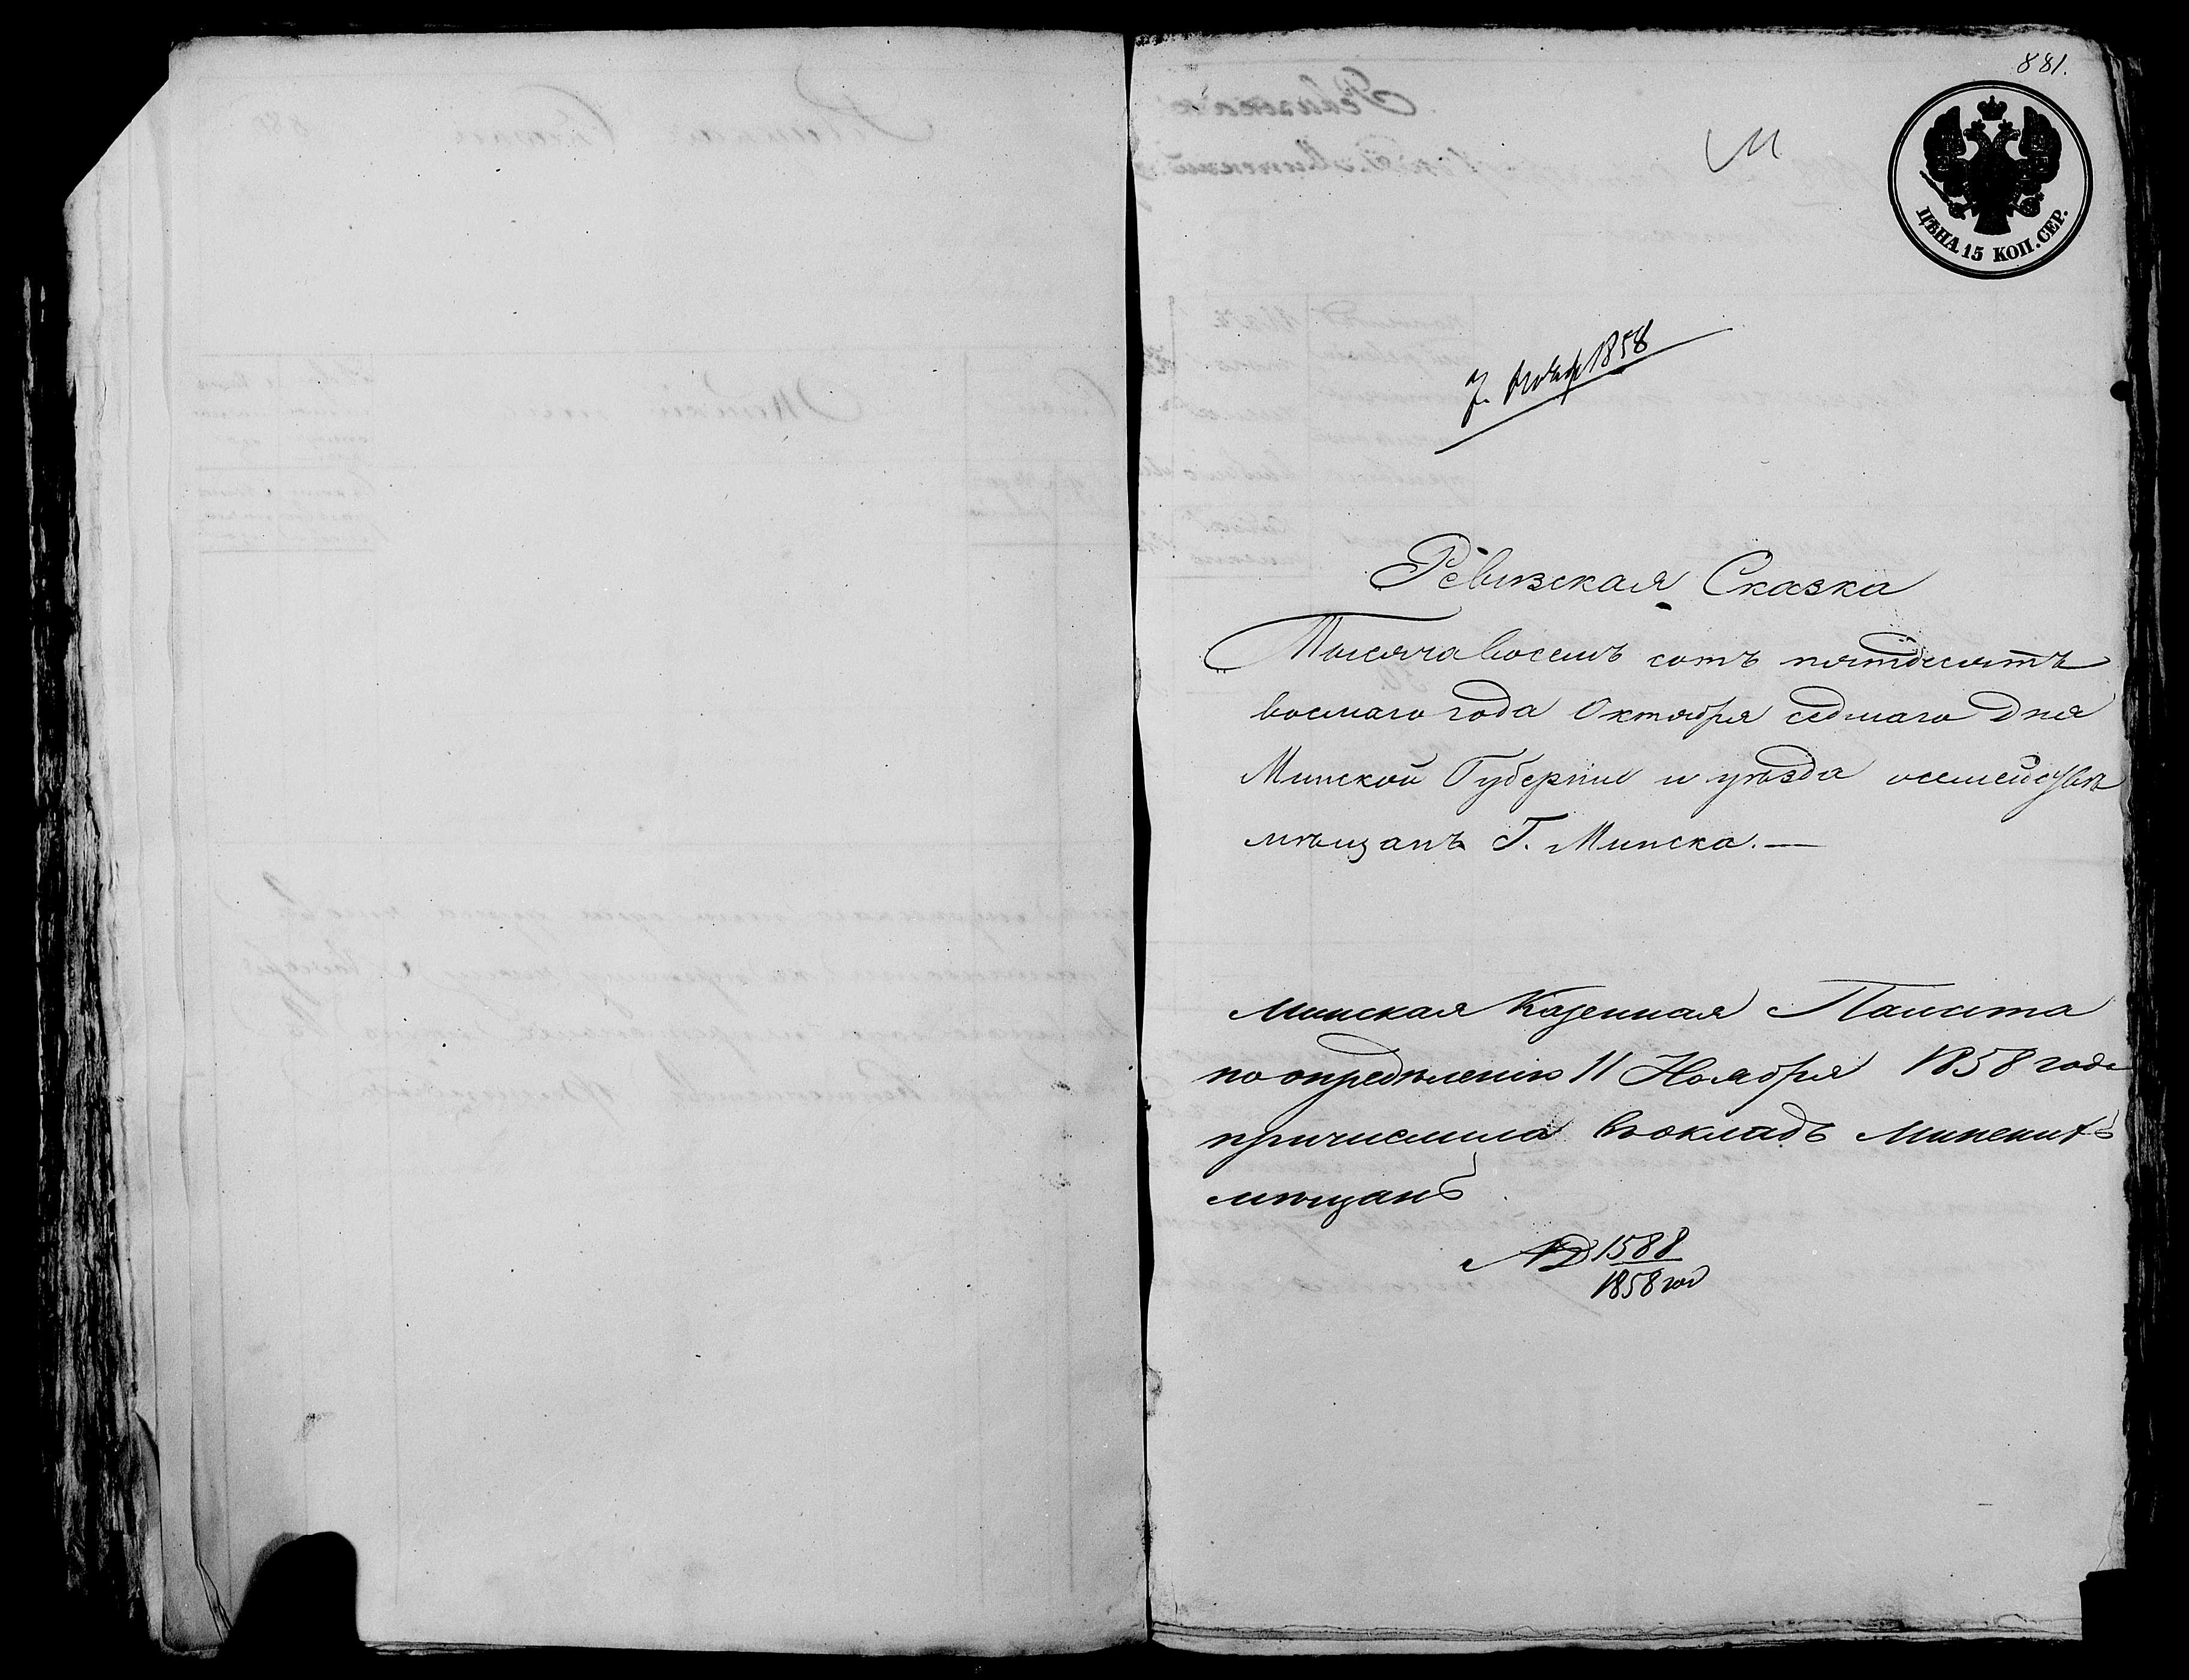 881.
М
ЦѢНА 15 КОП. СЕР.
7. 1858
Ревизская Сказка
Тысяча восемь сотъ пятдесятъ
восмаго года Октября седмаго дня
Минской Губерніи и уѣзда осемействѣ
мѣщанъ Г. Минска. —
Минская Казенная Палата
по опредѣленію 11 Ноября 1858 года
причислила въокладъ Минскихъ
мѣщанъ
1588
1858 год